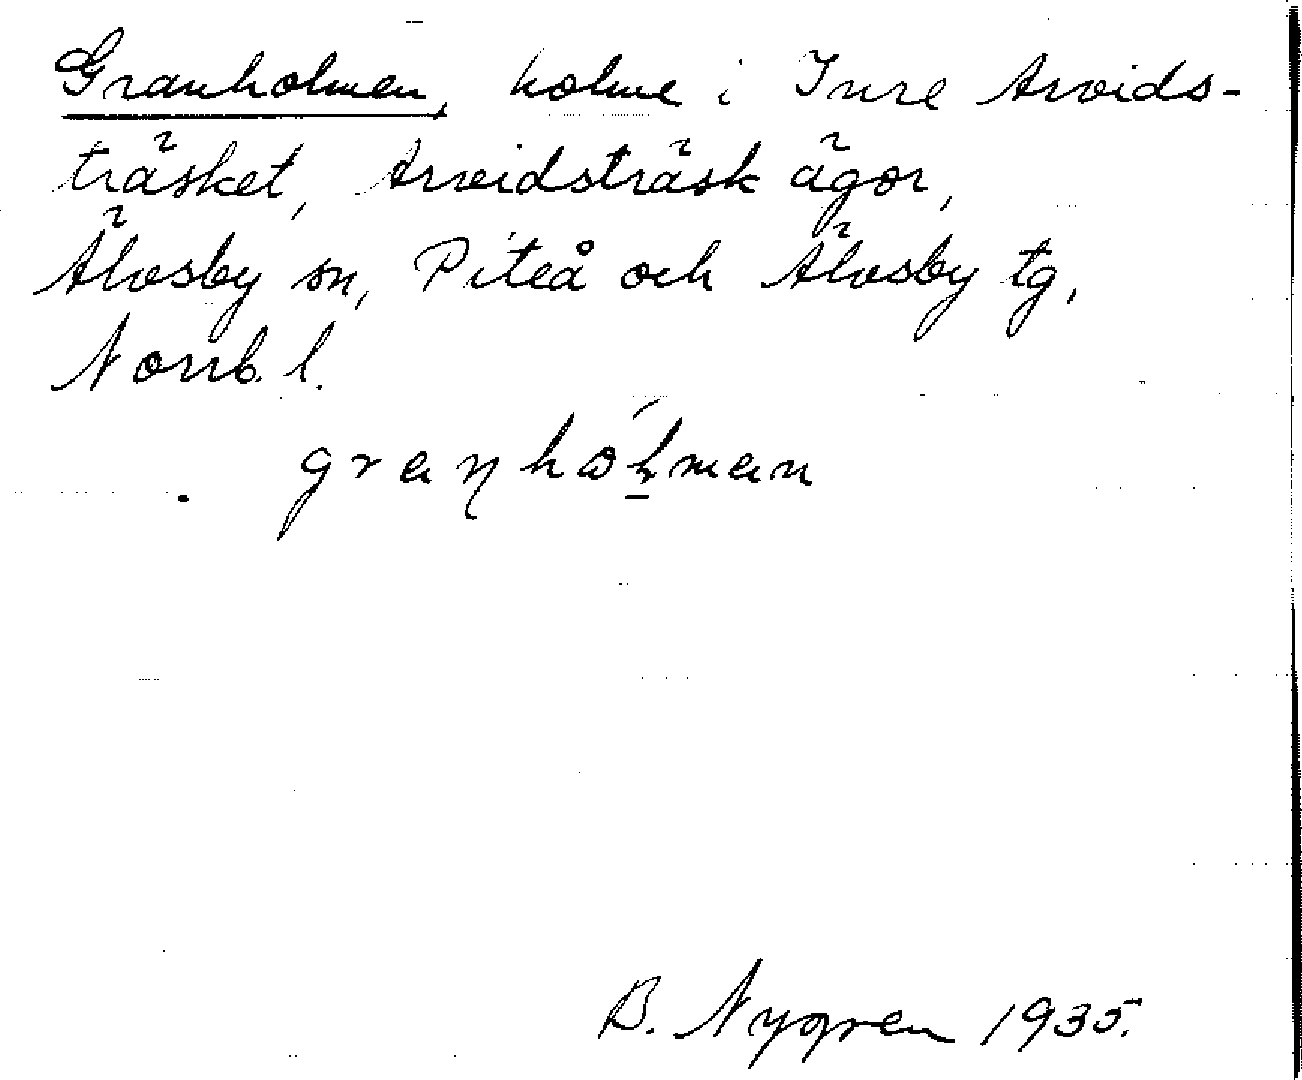 Granholmen, holme i Inre Arvids-
träsket, Arvidsträsk ägor,
Älvsby sn, Piteå och Älvsby tg,
Norrb. l.
granhòlman
B. Nygren 1935.